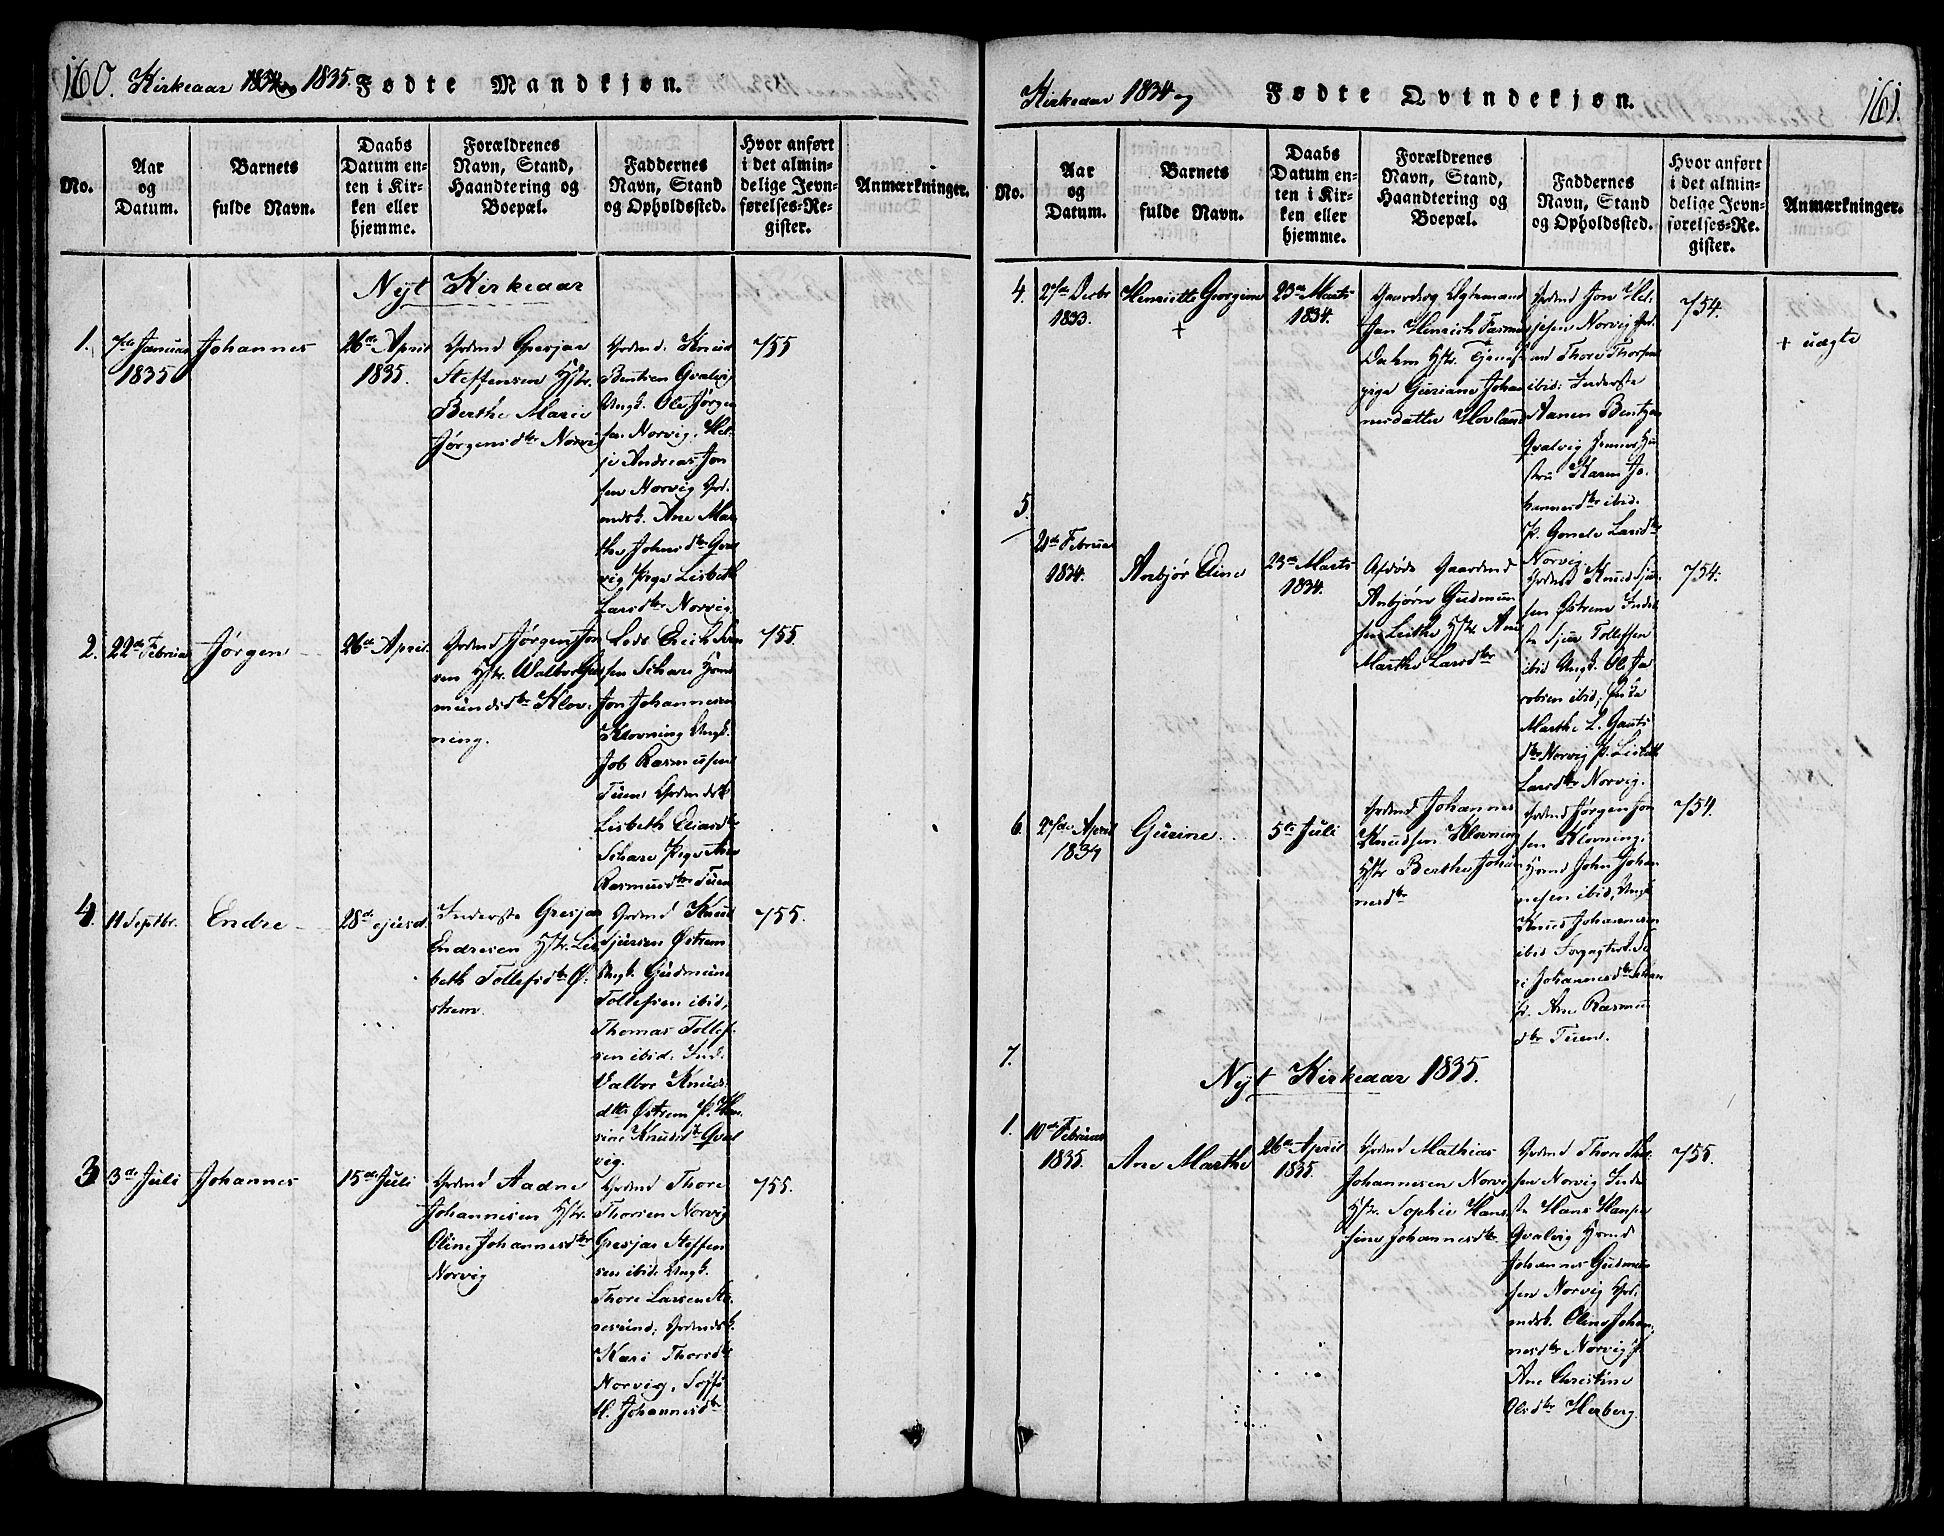 160. Kirkeaar 1834 og 1835. Fødte Mandkjøn.
No.
Aar
og
Datum.
Barnets
fulde Navn.
Daabs
Datum en-
ten i Kir-
ken eller
hjemme.
Forældrenes
Navn, Stand,
Haandtering og
Boepæl.
Faddernes
Navn, Stand
og Opholdssted.
Hvor anført
i det almin-
delige Jevn-
førelses-Re-
gister.
Anmærkninger.
Nyt Kirkeaar
1.
7de Januar
1835
Johannes
26de April
1835.
Grdmd Gresjar
Steffensen Hstr.
Berthe Marie
Jørgensdtr Norvig
Grdmd. Knud
Bentsen Gvalvig
Ungk. Ole Jørgen
sen Norvig. Hel-
je Andreas Jon
sen Norvig Grd.
mdsk. Ane Mar
the Johnsdtr Gval
vig Pige Lisbeth
Larsdtr Norvig.
755
2.
22de Februar
Jørgen
26de April.
Grdmd Jørgen Jon
sen Hstr. Walbor Gud
mundsdtr Klov-
ning.
Lods Erich Iven
sen Schare Hsmd
Jon Johannesen
Klovning Ungk.
Job Rasmussen
Tuen Grdmdsk
Lisbeth
Schare Pige Ane
Rasmusdtr Tuen
755.
4.
11 Septbr.
Endre
28de ejusd.
Inderste Gresjar
Endresen Hstr. Lis
beth Tollefsdtr Ø-
strem
Grdmd Knud
Sjursen Østrem
Ungk. Gudmund
Tollefsen ibid,
Thomas Tollef-
sen ibid. Ind.
Valbor Knuds-
dtr Østrem P.
sine Knudsdtr Gval
vig.
755.
3.
3de Juli
Johannes
15de Juli
Grdmd Aadne
Johannesen Hstr.
Oline Johannesdtr
Norvig
Grdmd Thore
Thorsen Norvig
Gresjar Steffen
sen ibid. Ungk.
Thore Larsen
resund, Grdmdsk.
Kari Thorsdtr
Norvig, Soffi
H. Johannesdtr
755.
Kirkeaar 1834 og
Fødte Qvindekjøn.
161.
No.
Aar
og
Datum.
Barnets
fulde Navn.
Daabs
Datum en-
ten i Kir-
ken eller
hjemme.
Forældrenes
Navn, Stand,
Haandtering og
Boepæl.
Faddernes
Navn, Stand
og Opholdssted.
Hvor anført
i det almin-
delige Jevn-
førelses-Re-
gister.
Anmærkninger.
4.
27de Decbr
1833.
Henriette Georgine
+
23de Marts
1834.
Gaardbrg Ægtemand
Jan Henrich Rasmus
Dahm Hstr. Tjeneste
pige Guriane Johan
nesdatter Hovland
Grdmd Jon Hel-
jesen Norvig Grd.
md Thore Thorsen
ibid: Inderste
Aanen Bentsen
Qvalvig Jennes Hu
stru Karen Jo-
hannesdtr ibid.
P. Gonele Larsdtr
Norvig.
754.
+ uægte
5.
20de Februar
1834.
Anbjør Eline
23de Marts
1834.
Afdøde Gaardmd
Anbjørn Gudmun
sen Leithe Hstr. Ane
Marthe Larsdtr
Grdmd Knud Sjur
sen Østrem Inder
ste Sjur Tollefsen
ibid Ungk. Ole Ja
cobsen ibid, Enke
Marthe L. Gauts
dtr Norvig P. Lisbeth
Larsdtr Norvig.
754.
6.
27de April
1834
Gurine
5te Juli
Grdmd Johannes
Knudsen Klovning
Hstr Berthe Johan
nesdtr
Grdmd Jørgen Jon
sen Klovning.
Hsmd John Johan
nesen ibid, Ungk.
Knud Johannesen
ibid Forpagterk.
Johannesdtr
P. Ane Rasmus
dtr Tuen.
754.
7.
Nyt Kirkeaar 1835.
1.
10de Februar
1835.
Ane Marthe
26de April
1835.
Grdmd Mathias
Johannesen Norvig
Hstr. Sophie Han-
sine Johannesdtr.
Grdmd Thore Thor
sen Norvig Inder
ste Hans Hansen
Qvalvig Hsmd
Johannes Gudmun
sen Norvig Grd.
mdsk. Oline Johan-
nesdtr Norvig P.
Ane Christine
Olsdtr Herberg.
755.